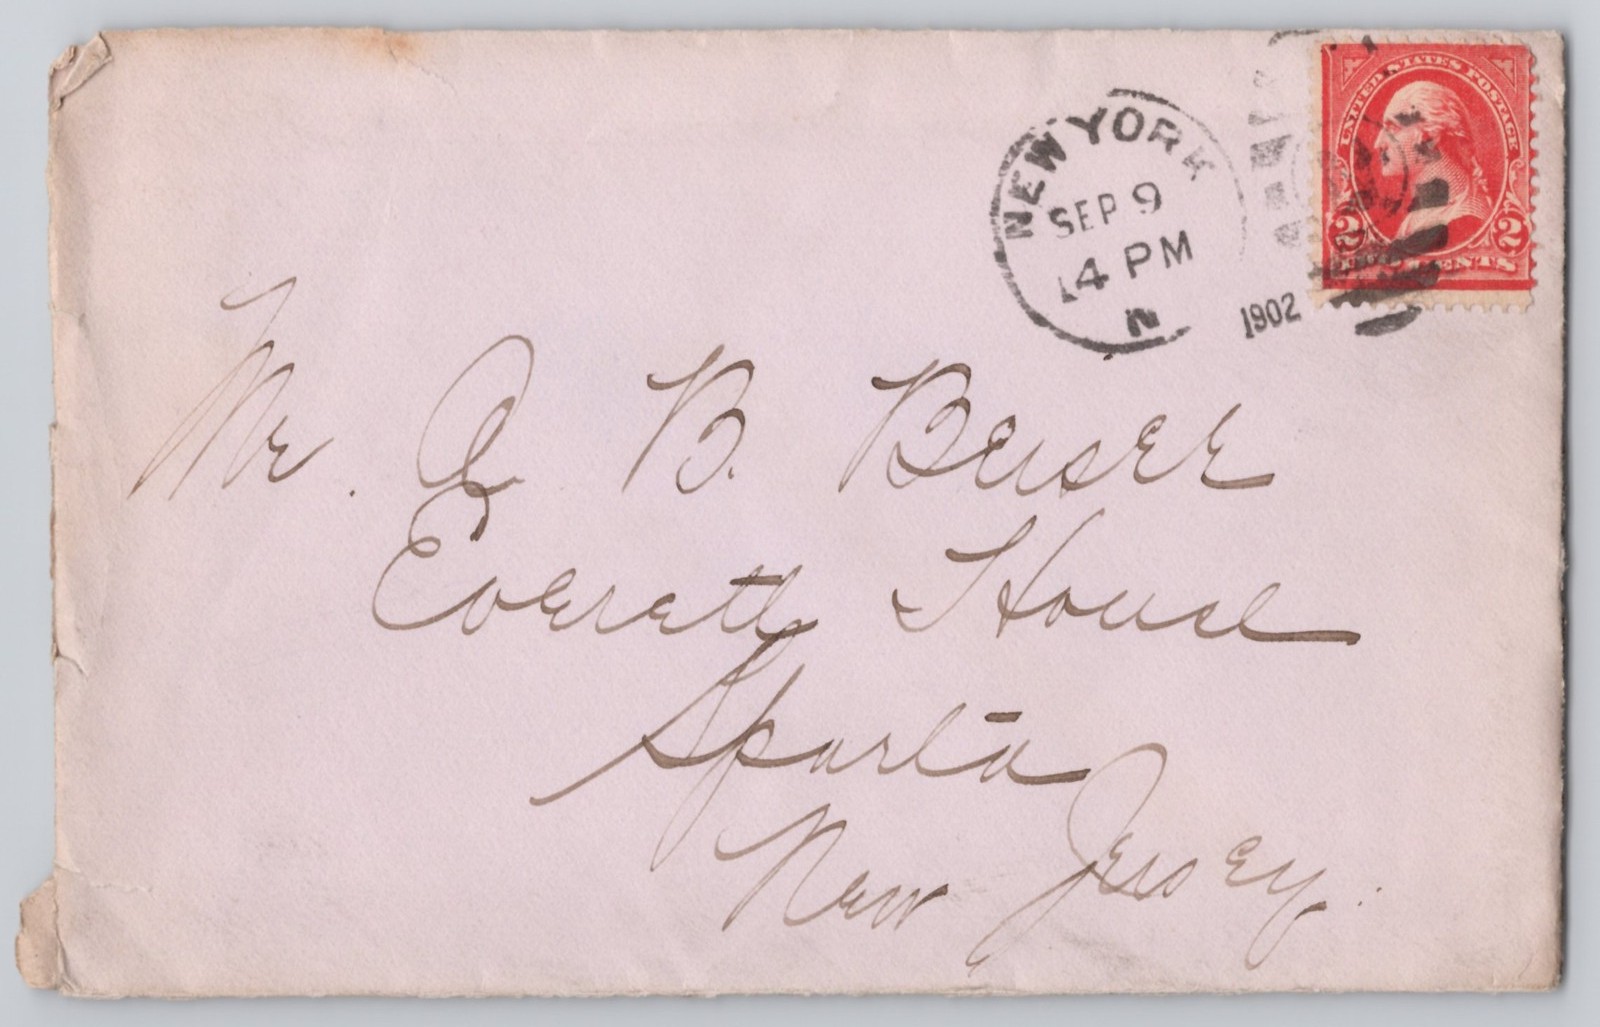 NEW YORK
SEP 9
4 PM
N
1902
UNITED STATES POSTAGE
2 2
TWO CENTS
Mr. A B. Beisel
Everett House
Sparta
New Jersey.